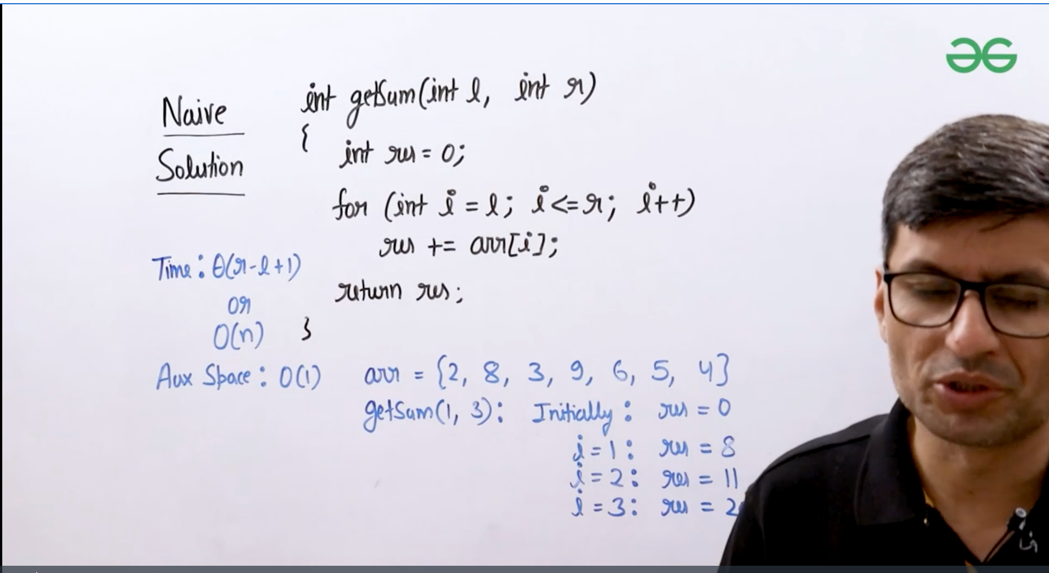 Naive
Solution
int getSum(int l, int r)
{
int res = 0;
for (int i = l; i<=r; i++)
res += arr[i];
return res;
}
Time: θ(r-l+1)
or
O(n)
Aux Space: O(1)
arr = {2, 8, 3, 9, 6, 5, 4}
getSum(1, 3): Initially: res = 0
i=1: res = 8
i=2: res = 11
i=3: res = 2